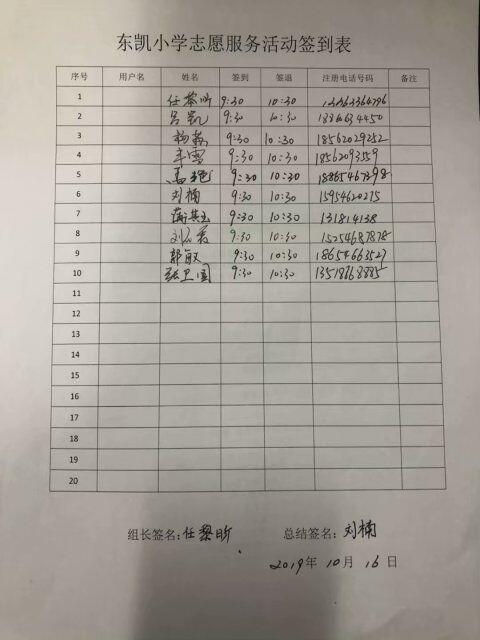 东凯小学志愿服务活动签到表
序号 用户名 姓名 签到 签退 注册电话号码 备注
1 任黎昕 9:30 10:30
2 吕凯 9:30 10:30
3 杨 9:30 10:30 18562029252
4 辛雪 9:30 10:30
5 9:30 10:30 18865467398
6 刘楠 9:30 10:30 15954620275
7 9:30 10:30 131814138
8 9:30 10:30 15254687878
9 郭敏 9:30 10:30 18654663527
10 张卫国 9:30 10:30 13518668885
11
12
13
14
15
16
17
18
19
20
组长签名:任黎昕 总结签名:刘楠
2019年 10月 16日